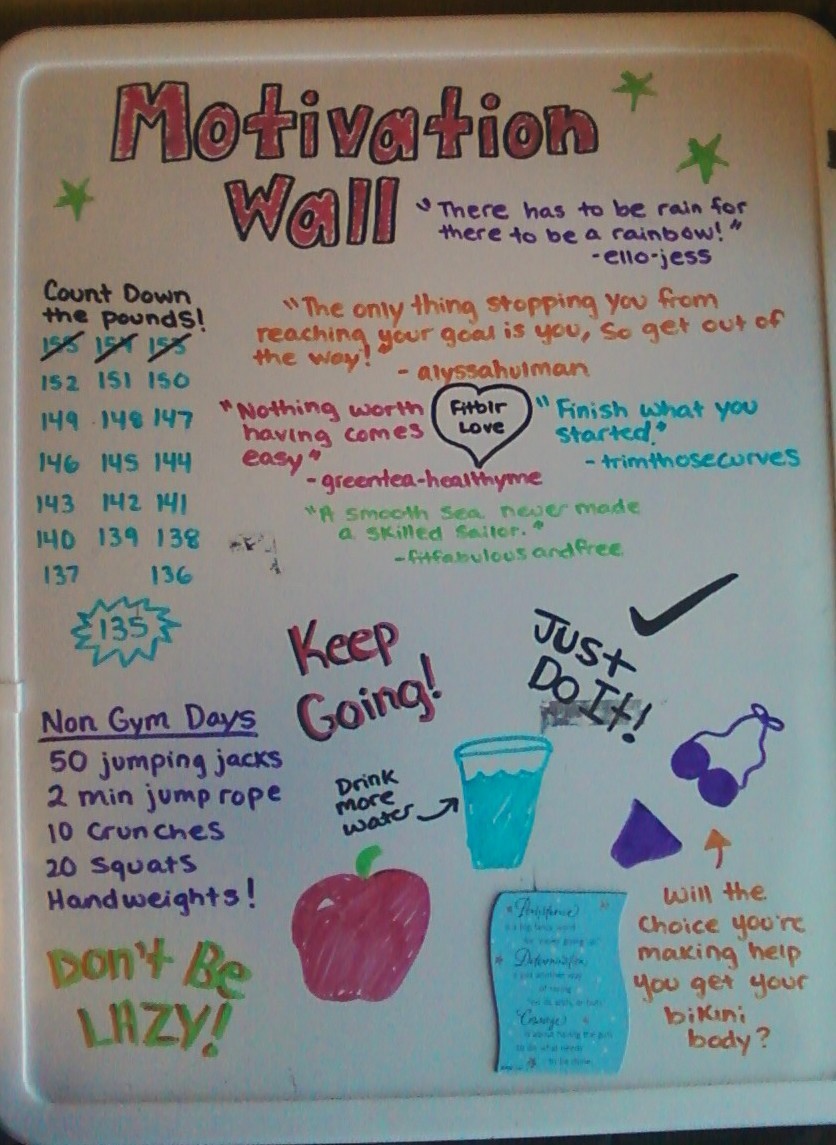 Motivation
Wall
"There has to be rain for
there to be a rainbow!"
-ello-jess
Count Down
the pounds!
155 154 153
152 151 150
149 148 147
146 145 144
143 142 141
140 139 138
137 136
135
"The only thing stopping you from
reaching your goal is you, so get out of
the way!"
- alyssahulman
"Nothing worth
having comes
easy"
- greentea-healthyme
Fitblr
Love
"Finish what you
started."
- trimthosecurves
"A smooth sea never made
a skilled sailor."
-fitfabulousandfree
Keep
Going!
Just
Do It!
Non Gym Days
50 jumping jacks
2 min jump rope
10 crunches
20 squats
Handweights!
Drink
more
water
Don't Be
LAZY!
Will the
choice you're
making help
you get your
bikini
body?
Persistence
Determination
Courage